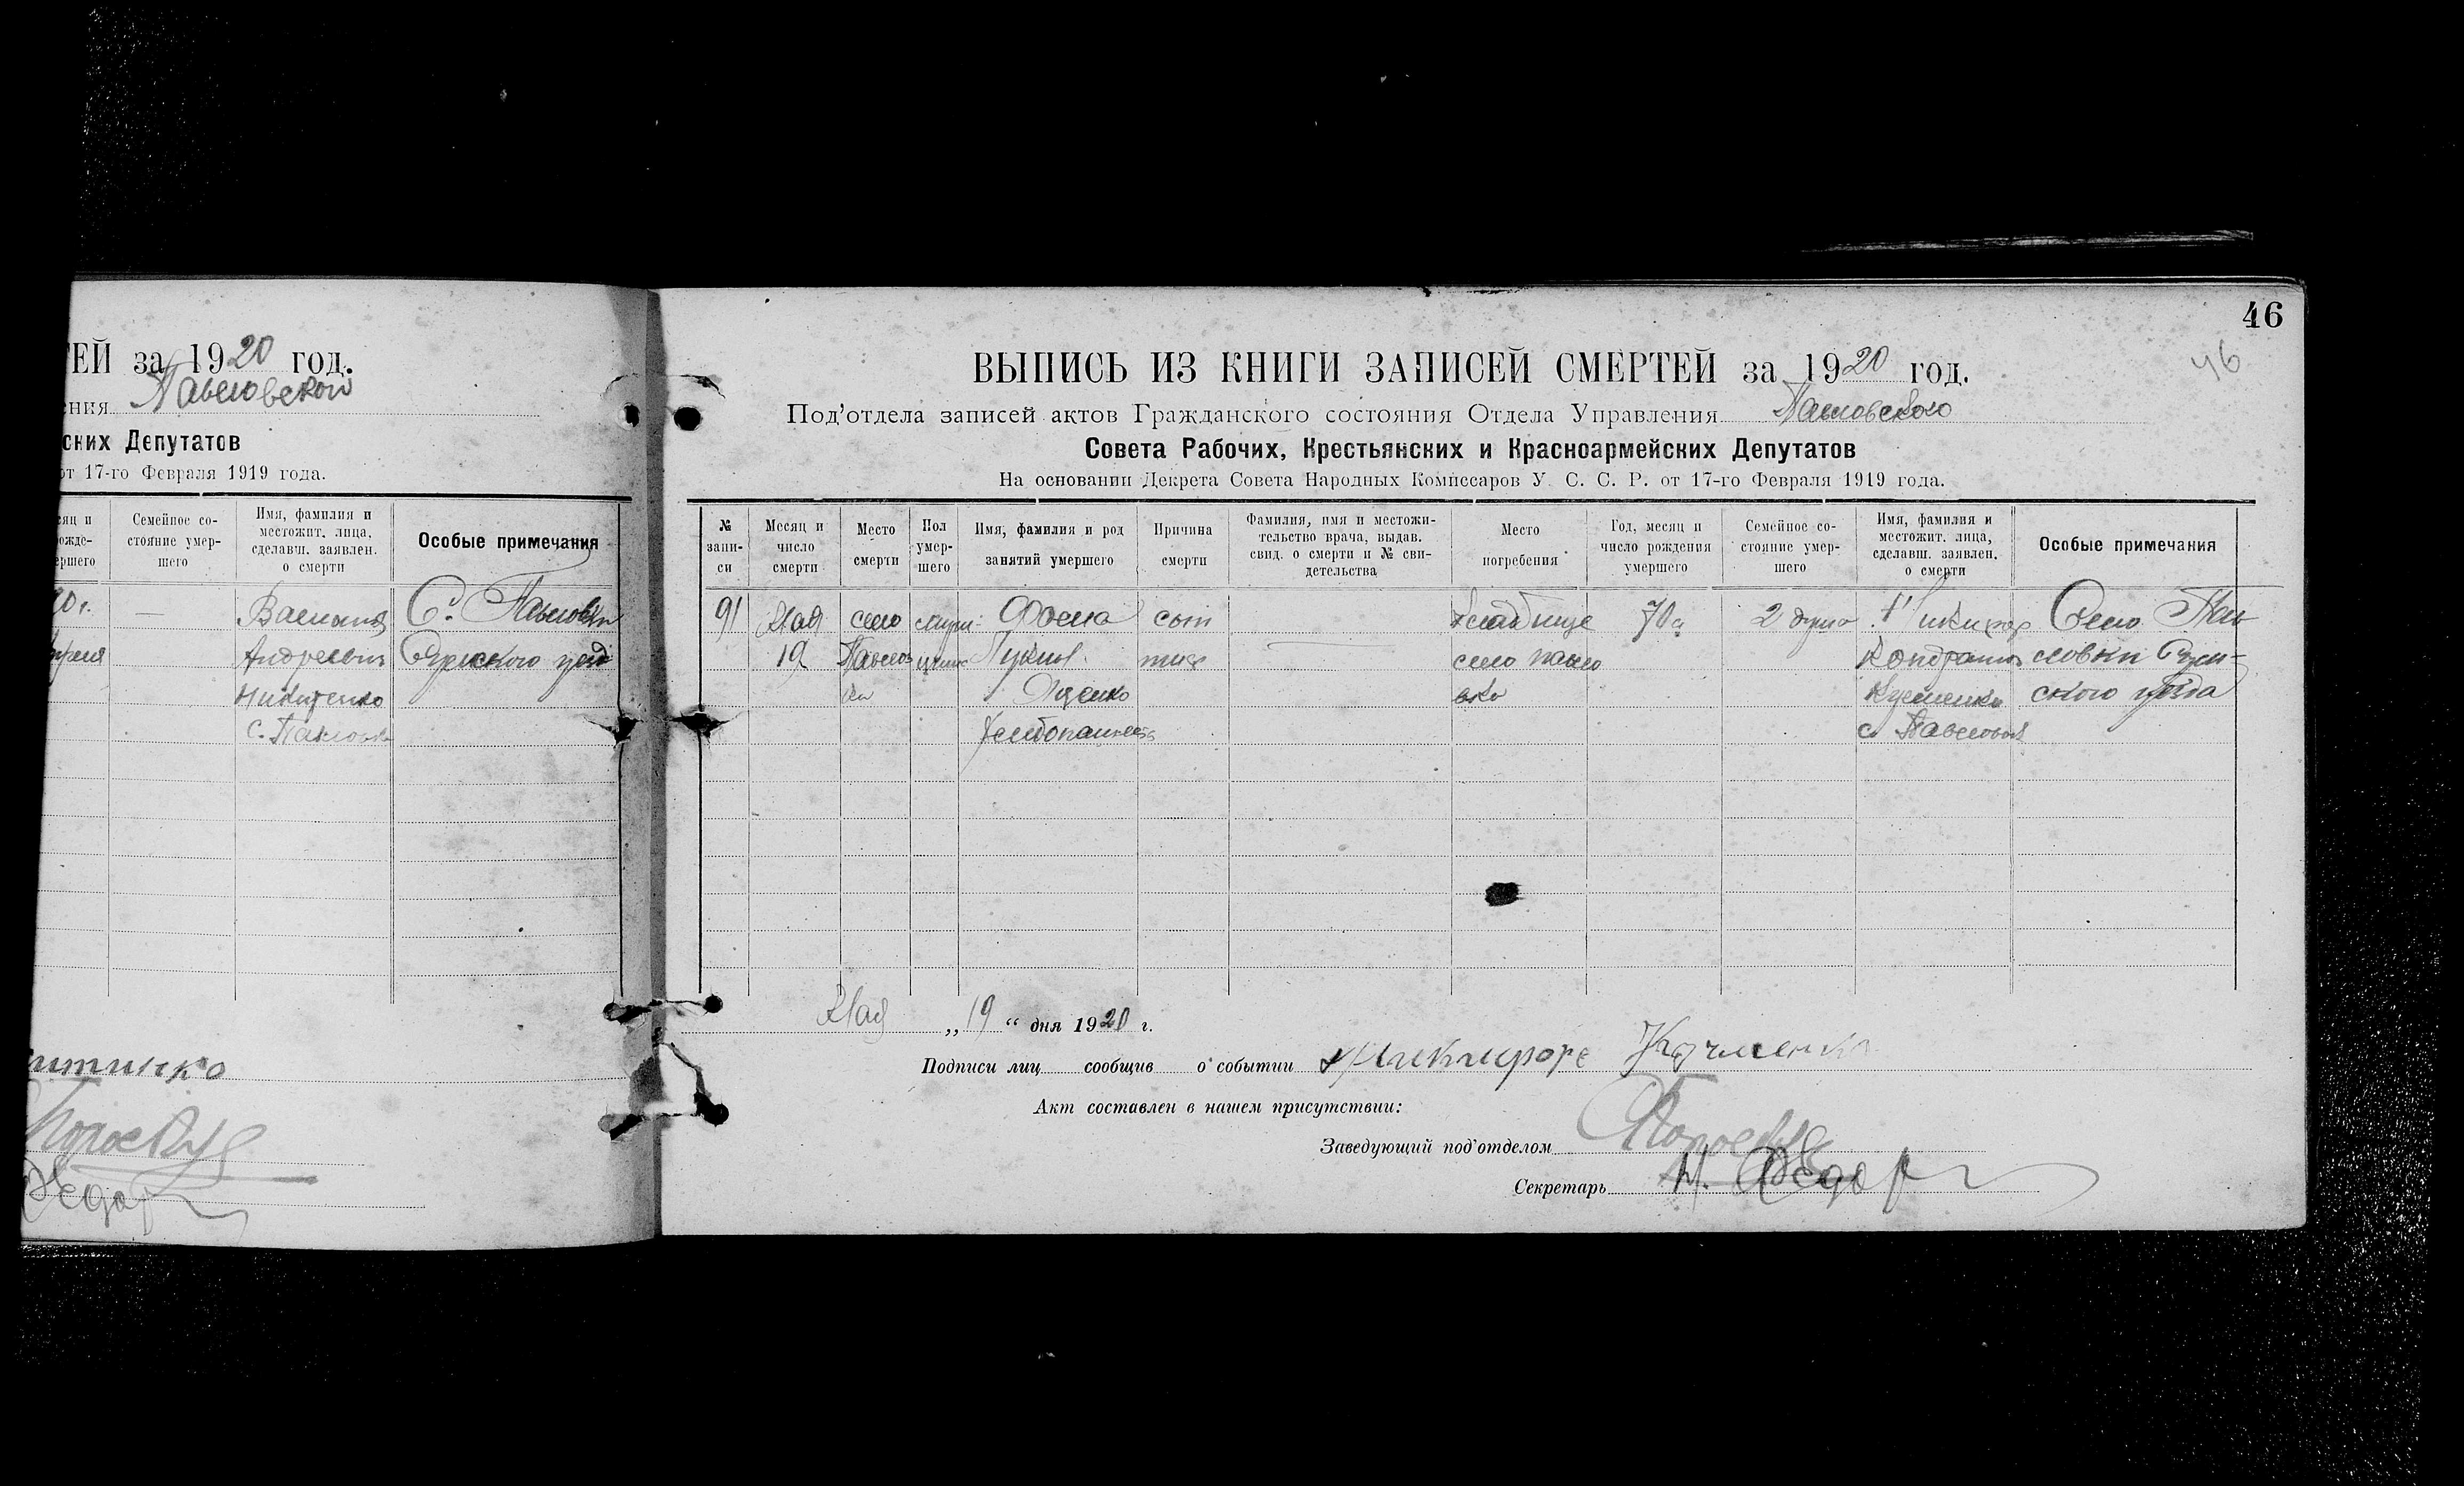 ТЕЙ за 1920 год.
ения Павловской
ских Депутатов
от 17-го Февраля 1919 года.
сяц и
рожде-
ершего
Семейное со-
стояние умер-
шего
Имя, фамилия и
местожит. лица,
сделавш. заявлен.
о смерти
Особые примечания
0 г. —
С. Павловки
Андреевич
уезд
Никитенко
с. Павловка
46
46
ВЫПИСЬ ИЗ КНИГИ ЗАПИСЕЙ СМЕРТЕЙ за 1920 год.
Под'отдела записей актов Гражданского состояния Отдела Управления Павловского
Совета Рабочих, Крестьянских и Красноармейских Депутатов
На основании Декрета Совета Народных Комиссаров У. С. С. Р. от 17-го Февраля 1919 года.
№
запи-
си
Месяц и
число
смерти
Место
смерти
Пол
умер-
шего
Имя, фамилия и род
занятий умершего
Причина
смерти
Фамилия, имя и местожи-
тельство врача, выдав.
свид. о смерти и № сви-
детельства
Место
погребения
Год, месяц и
число рождения
умершего
Семейное со-
стояние умер-
шего
Имя, фамилия и
местожит. лица,
сделавш. заявлен.
о смерти
Особые примечания
91
Мая
19
село
Павлов
ка
мущи-
Фома
Яценко
сып
тиф
кладбище
село павло
вка
70
2 душа
Никифор
Кондратов
с Павловки
Село Пав
ловки
ского уезда
Мая „19“ дня 1920 г.
Подписи лиц сообщив о событии Никифоре
Акт составлен в нашем присутствии:
Заведующий под'отделом
Секретарь Н. Федор